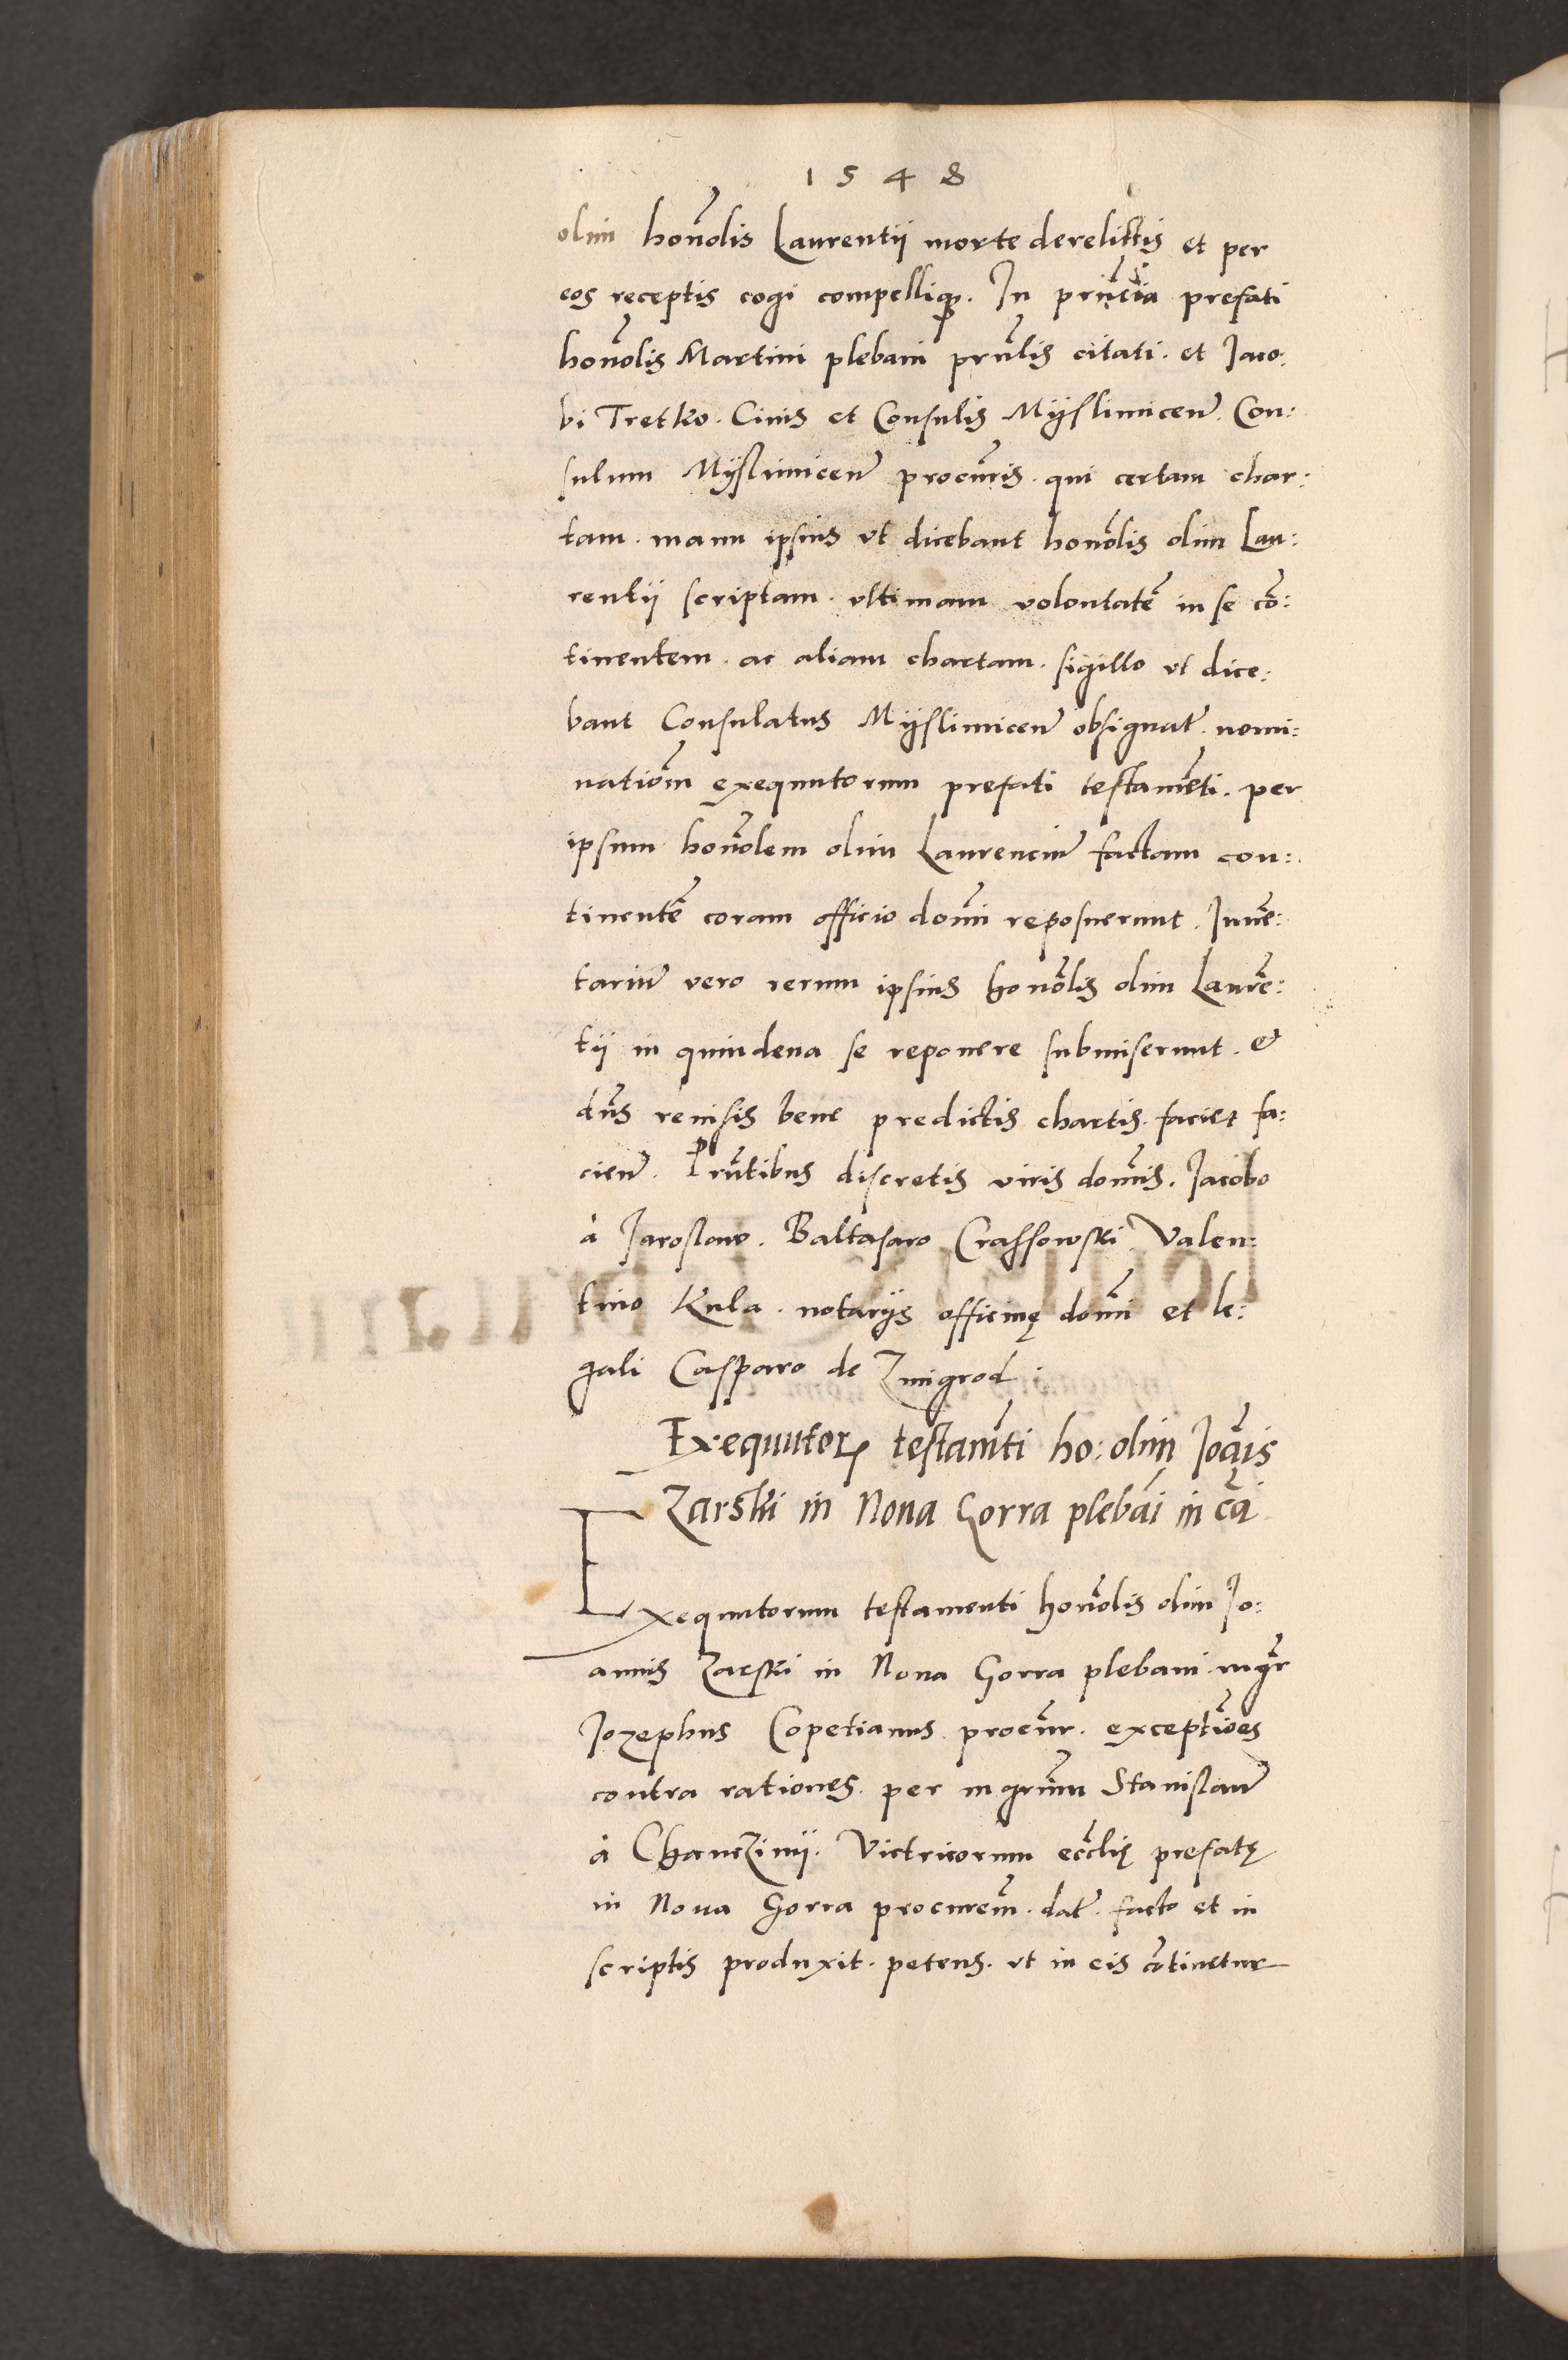 1548
olim honolis Laurentii morte derelictis et per
eos receptis cogi compellique. In prncia prefati
honolis Martini plebani prnlis citati. et Jaco:
bi Tretko. Civis et Consulis Myslimicen. Con:
sulum Myslimicen procuris. qui certam char:
tam. manu ipsius vt dicebant honolis olim Lau:
rentii scriptam. vltimam volontatē in se cō:
tinentem. ac aliam chartam. sigillo vt dice:
bant Consulatus Myslimicen obsignat. nomi:
nationem exequutorum prefati testamēti. per
ipsum honolem olim Laurenciū factam con:
tinentē coram officio domi reposuerunt. Invē:
tariū vero rerum ipsius honolis olim Laurē:
tii in quindena se reponere submiserunt. &
dns revisis bene predictis chartis. faciet fa:
cien. Prntibus discretis viris domis. Jacobo
à Jaroslaw. Baltasaro Crassowski. Valen:
tino Kula. notariis officinę domi et le:
gali Casparo de Zmigrod.
Exequutorum testamti ho: olim Joānis
Zarski in Nova Gorra plebāi in cā
Exequutorum testamenti honolis olim Jo:
annis Zarski in Nova Gorra plebani. mgr
Jozephus Copetianus procur. exceptiōes
contra rationes. per mgrum Stanislaū
à Chanczinii. Victricorum ecclię prefatę
in Nova Gorra procurem. dat. facto et in
scriptis produxit. petens. vt in eis cōtinetur